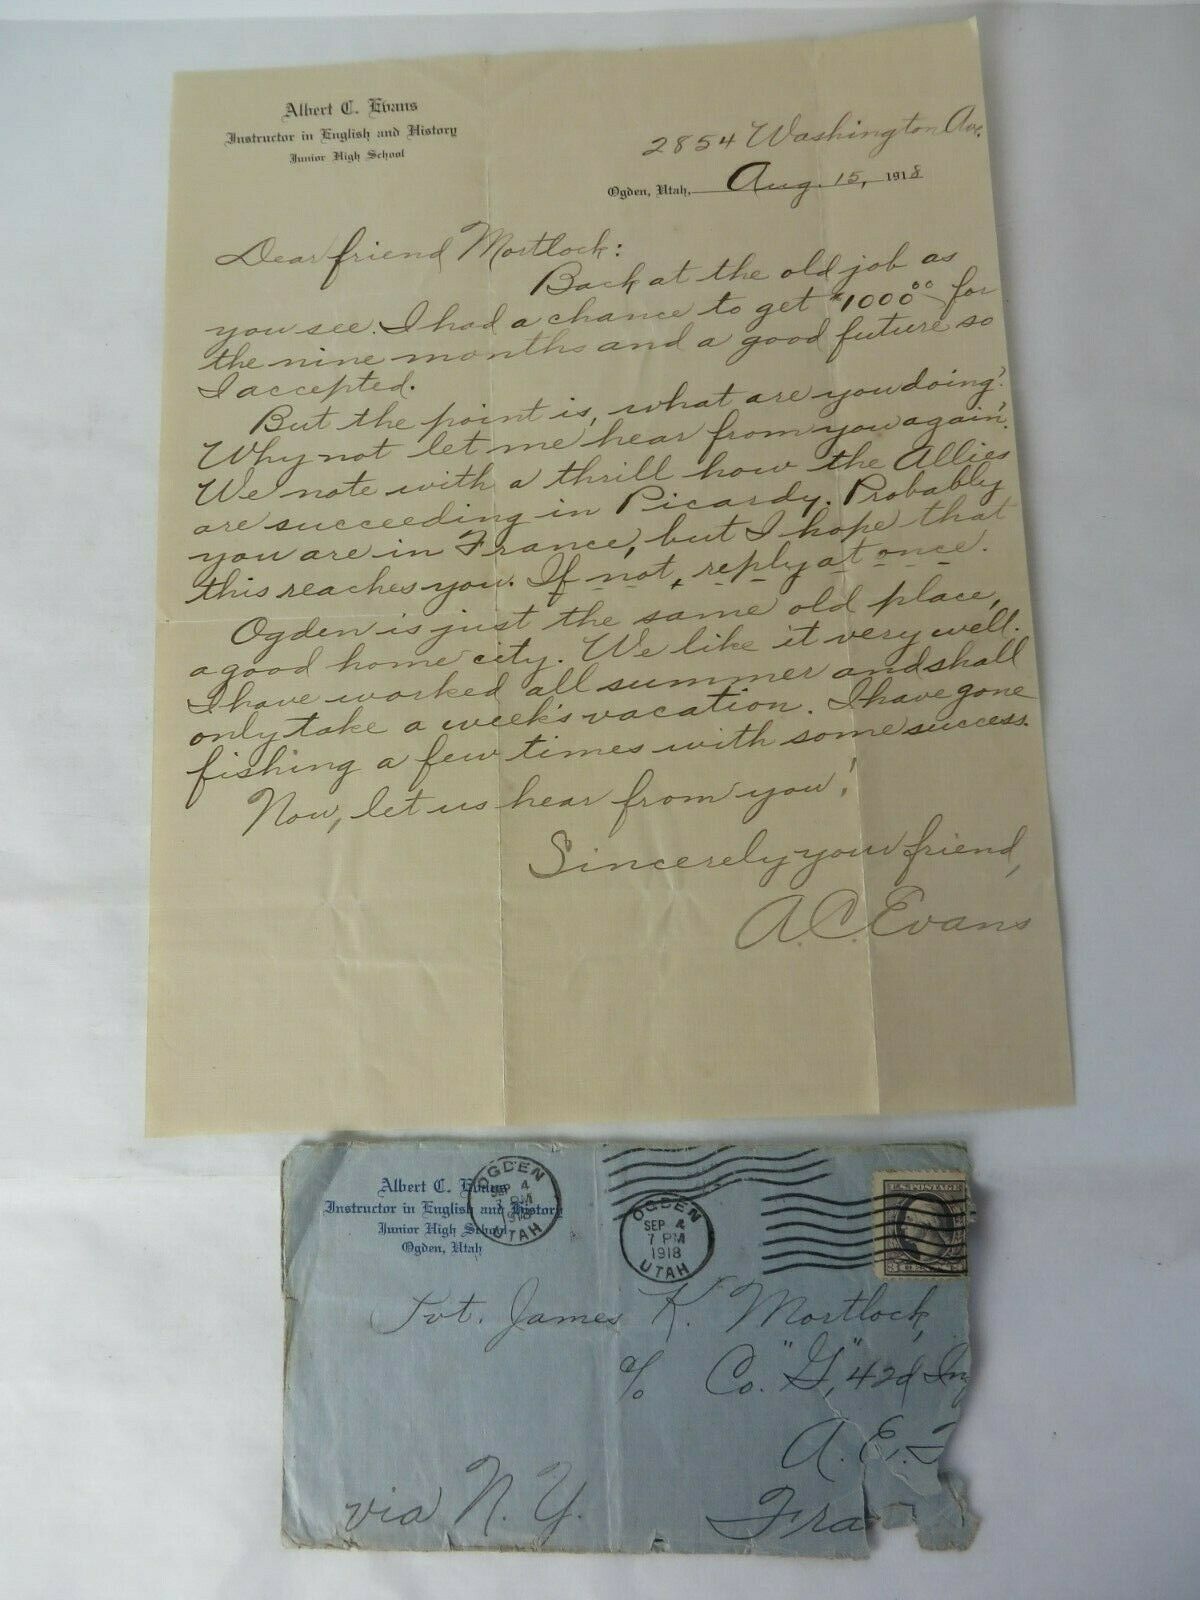 Albert C. Evans
Instructor in English and History
Junior High School
2854 Washington Ave.
Ogden, Utah, Aug. 15, 1918
Dear friend Mortlock:
Back at the old job as
you see. I had a chance to get $1000.00 for
the nine months and a good future so
I accepted.
But the point is, what are you doing?
Why not let me hear from you again?
We note with a thrill how the Allies
are succeeding in Picardy. Probably
you are in France, but I hope that
this reaches you. If not, reply at once.
Ogden is just the same old place,
a good home city. We like it very well.
I have worked all summer and shall
only take a week's vacation. I have gone
fishing a few times with some success.
Now, let us hear from you!
Sincerely your friend,
A. C. Evans
Albert C. Evans
Instructor in English and History
Junior High School
Ogden, Utah
OGDEN
SEP 4
7 PM
1918
UTAH
OGDEN
SEP 4
7 PM
1918
UTAH
U.S. POSTAGE
Pvt. James K. Mortlock,
c/o Co. "G", 42d Inf
A. E. F
via N. Y.
Fra